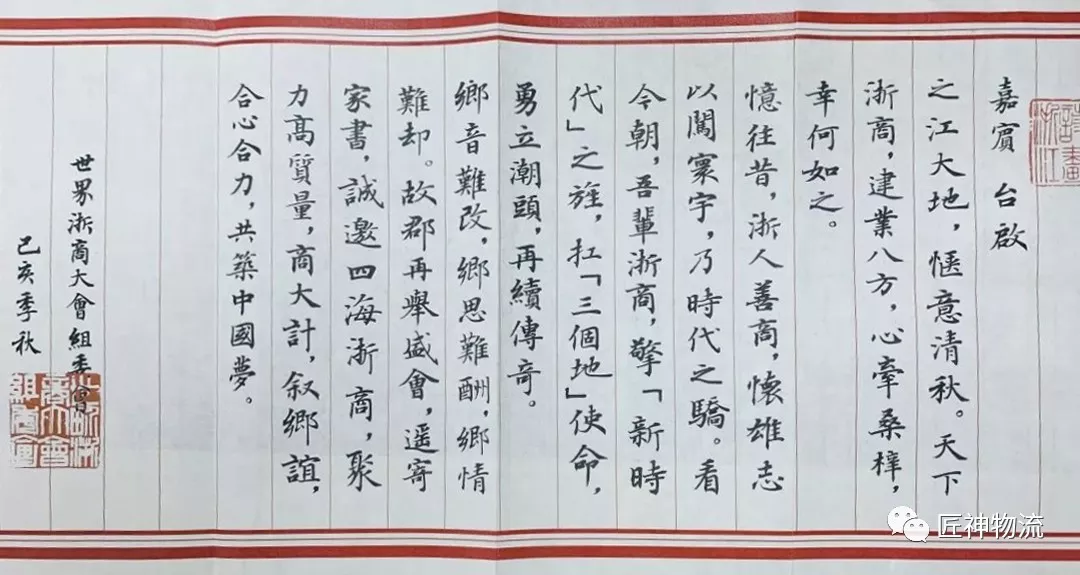 嘉賓 台啟
之江大地，愜意清秋。天下
浙商，建業八方，心牽桑梓，
幸何如之。
憶往昔，浙人善商，懷雄志
以闖寰宇，乃時代之驕。看
今朝，吾輩浙商，擎「新時
代」之旌，扛「三個地」使命，
勇立潮頭，再續傳奇。
鄉音難改，鄉思難酬，鄉情
難却。故郡再舉盛會，遥寄
家書，誠邀四海浙商，聚
力高質量，商大計，叙鄉誼，
合心合力，共築中國夢。
世界浙商大會組委會
己亥季秋
匠神物流